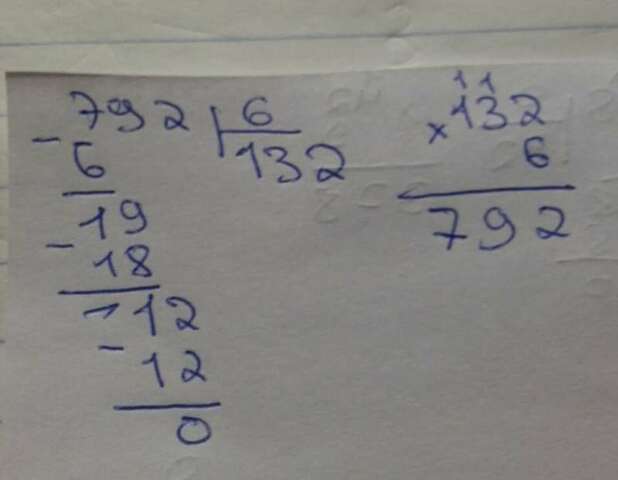 - 792 | 6
6 132
- 19
18
- 12
- 12
0
11
× 132
6
792